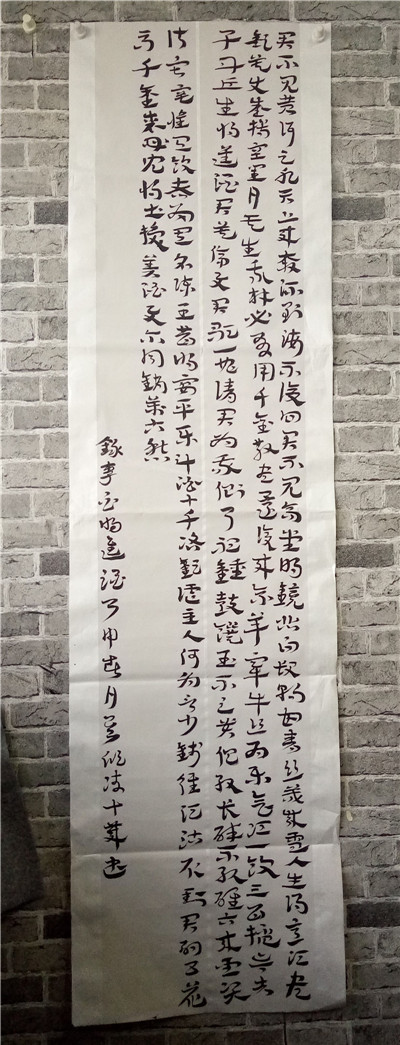 君不见黄河之水天上来奔流到海不复回君不见高堂明鏡悲白发朝如青丝暮成雪人生得意须尽
欢莫使金樽空对月天生我材必有用千金散尽還复来烹羊宰牛且为乐会须一饮三百杯岑夫
子丹丘生将进酒君莫停与君歌一曲请君为我倾耳听鐘鼓饌玉不足贵但愿长醉不愿醒古来圣贤
皆寂寞惟有饮者留其名陈王昔时宴平乐斗酒十千恣歡谑主人何为言少钱径须沽取对君酌五花
马千金裘呼儿将出换美酒与尔同销万古愁
錄李白将进酒 春月